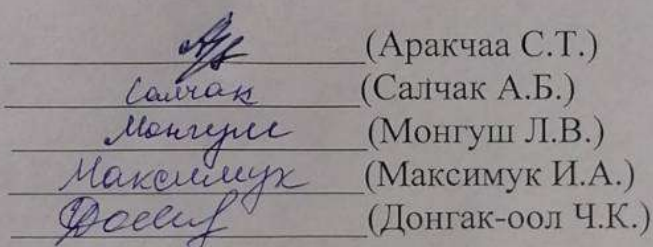 (Аракчаа С.Т.)
Салчак (Салчак А.Б.)
Монгуш (Монгуш Л.В.)
Максимук (Максимук И.А.)
(Донгак-оол Ч.К.)